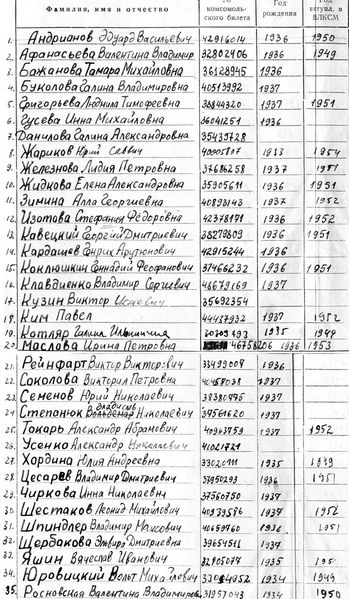 Фамилия, имя и отчество № комсомольского билета Год рождения Год вступл. в ВЛКСМ
1. Андрианов Эдуард Васильевич 42916014 1936 1950
2. Афанасьева Валентина Владимир 32802406 1936 1949
3. Бажанова Тамара Михайловна 36128945 1936
4. Буколова Галина Владимировна 40513992 1937
5. Григорьева Людмила Тимофеевна 1937 1951
6. Гусева Инна Михайловна 36041251 1936
7. Данилова Галина Александровна 35439728
8. Жариков Юрий 1933 1954
9. Железнова Лидия Петровна 37686258 1937 1951
10. Жидкова Елена Александровна 35905611 1936 1951
11. Зимина Алла Георгиевна 40893143 1937 1952
12. Изотова Стефания Федоровна 42378191 1936 1952
13. Кавецкий Георгий Дмитриевич 38279809 1936 1951
14. Кардашев Генрих Арутюнович 42915244 1936
15. Коклюшкин Геннадий Феофанович 37466232 1936 1951
16. Клавдиенко Владимир Сергеевич 46679169 1937
17. Кузин Виктор 35692354
18. Ким Павел 44437932 1937 1952
19. Котляр 1935 1949
20. Маслова Ирина Петровна 46758206 1936 1953
21. Рейнфарт Виктор Викторович 33499007 1936
22. Соколова Виктория Петровна 1937
23. Семенов Юрий Николаевич 38380475 1937
24. Степанюк Владислав Николаевич 37561620 1937
25. Токарь Александр Абрамович 40963759 1937 1952
26. Усенко Александр Николаевич 41021721
27. Хордина Юлия Андреевна 33020111 1935 1949
28. Цесарев Владимир Дмитриевич 37950293 1936 1951
29. Чиркова Инна Николаевна 37560750 1937
30. Шестаков Леонид Михайлович 40839586 1937 1952
31. Шпиндлер Владимир Максович 40659760 1936 1951
32. Щербакова Эльвира Дмитриевна 39654511 1937
33. Яшин Вячеслав Иванович 32905074 1935
34. Юровицкий Вольт Михайлович 1934 1949
35. Росновская Валентина Владимиров 31957043 1934 1950